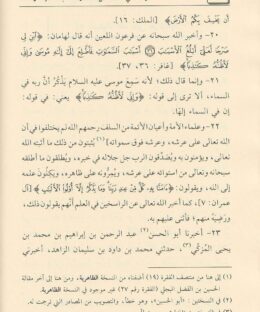 أن يَخْسِفَ بِكُمُ ٱلْأَرْضَ﴾ [الملك: ١٦].
٢٠ - وأخبر الله سبحانه عن فرعون اللعين أنه قال لهامان: ﴿ٱبْنِ لِي
صَرْحًا لَّعَلِّيٓ أَبْلُغُ ٱلْأَسْبَٰبَ ۝ أَسْبَٰبَ ٱلسَّمَٰوَٰتِ فَأَطَّلِعَ إِلَىٰٓ إِلَٰهِ مُوسَىٰ وَإِنِّي
لَأَظُنُّهُۥ كَٰذِبًا﴾ [غافر: ٣٦، ٣٧].
٢١ - وإنما قال ذلك؛ لأنه سَمِعَ موسى عليه السلام يذكُرُ أنَّ ربه في
السماء، ألا ترى إلى قوله: ﴿وَإِنِّي لَأَظُنُّهُۥ كَٰذِبًا﴾ يعني: في قوله:
إن في السماء إلهًا.
٢٢ - وعلماء الأمة وأعيان الأئمة من السلف رحمهم الله لم يختلفوا في أن
الله تعالى على عرشه، وعرشه فوق سمواته[١] يُثبتون من ذلك ما أثبته الله
تعالى، ويؤمنون به ويُصدِّقون الرب جل جلاله في خبره، ويُطلقون ما أطلقه
سبحانه وتعالى من استوائه على عرشه، ويُمِرُّونه على ظاهره، ويَكِلُون علمه
إلى الله، ويقولون: ﴿ءَامَنَّا بِهِۦ كُلٌّ مِّنْ عِندِ رَبِّنَا وَمَا يَذَّكَّرُ إِلَّآ أُو۟لُوا۟ ٱلْأَلْبَٰبِ﴾ [آل
عمران: ٧]، كما أخبر الله تعالى عن الراسخين في العلم أنَّهم يقولون ذلك،
ورَضِيَهُ منهم؛ فأثنى عليهم به.
٢٣ - أخبرنا أبو الحسن(٢) عبد الرحمن بن إبراهيم بن محمد بن
يحيى المُزكِّي(٣)، حدثني محمد بن داود بن سليمان الزاهد، أخبرني
(١) إلى هنا من منتصف الفقرة (١٩) أضفناه من النسخة الظاهرية، ومن هنا إلى آخر مقالة
الحسين بن الفضل البجلي الفقرة رقم ٢٧ غير موجود في النسخة الظاهرية.
(٢) في النسختين: «أبو الحسين»، وهو خطأ، والتصويب من المصادر التي ترجمت له.